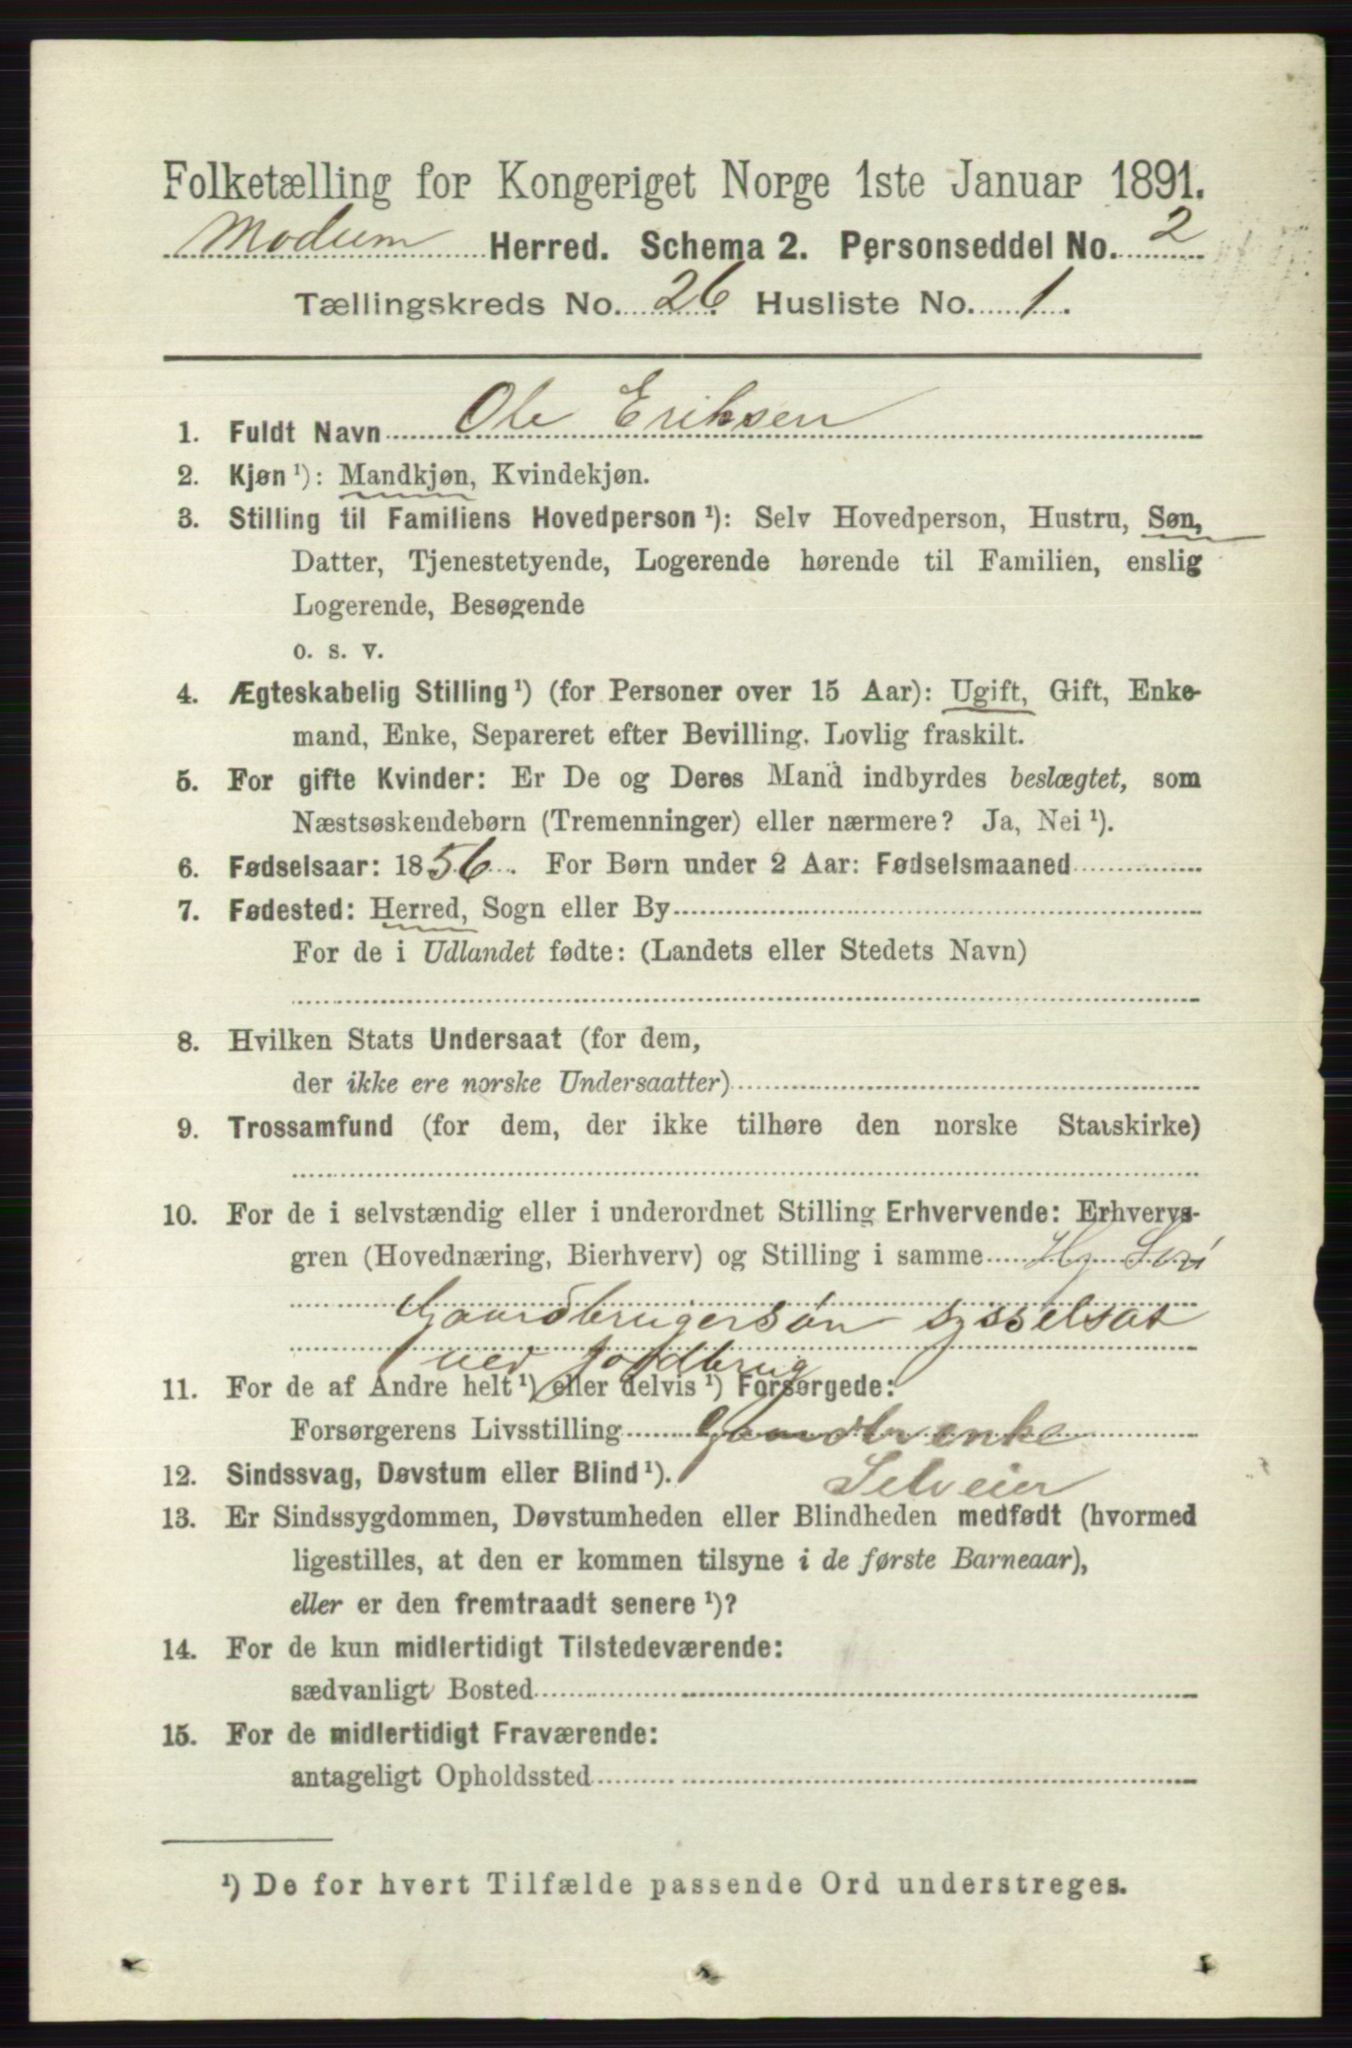 Folketælling for Kongeriget Norge 1ste Januar 1891.
Modum Herred. Schema 2. Personseddel No. 2
Tællingskreds No. 26 Husliste No. 1.
1. Fuldt Navn Ole Eriksen
2. Kjøn ¹): Mandkjøn, Kvindekjøn.
3. Stilling til Familiens Hovedperson ¹): Selv Hovedperson, Hustru, Søn,
Datter, Tjenestetyende, Logerende hørende til Familien, enslig
Logerende, Besøgende
o. s. v.
4. Ægteskabelig Stilling ¹) (for Personer over 15 Aar): Ugift, Gift, Enke-
mand, Enke, Separeret efter Bevilling. Lovlig fraskilt.
5. For gifte Kvinder: Er De og Deres Mand indbyrdes beslægtet, som
Næstsøskendebørn (Tremenninger) eller nærmere? Ja, Nei ¹).
6. Fødselsaar: 1856. For Børn under 2 Aar: Fødselsmaaned
7. Fødested: Herred, Sogn eller By
For de i Udlandet fødte: (Landets eller Stedets Navn)
8. Hvilken Stats Undersaat (for dem,
der ikke ere norske Undersaatter)
9. Trossamfund (for dem, der ikke tilhøre den norske Statskirke)
10. For de i selvstændig eller i underordnet Stilling Erhvervende: Erhvervs-
gren (Hovednæring, Bierhverv) og Stilling i samme
Gaardbrugersøn sysselsat
ved Jordbrug
11. For de af Andre helt ¹) eller delvis ¹) Forsørgede:
Forsørgerens Livsstilling Gaardbr enke
12. Sindssvag, Døvstum eller Blind ¹). Selveier
13. Er Sindssygdommen, Døvstumheden eller Blindheden medfødt (hvormed
ligestilles, at den er kommen tilsyne i de første Barneaar),
eller er den fremtraadt senere ¹)?
14. For de kun midlertidigt Tilstedeværende:
sædvanligt Bosted
15. For de midlertidigt Fraværende:
antageligt Opholdssted
¹) De for hvert Tilfælde passende Ord understreges.